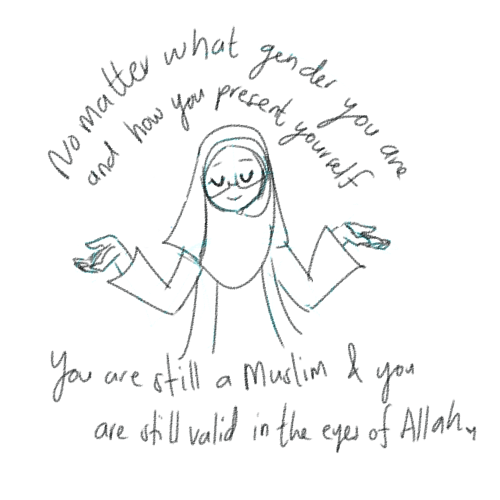 No matter what gender you are
and how you present yourself
You are still a Muslim & you
are still valid in the eyes of Allah.